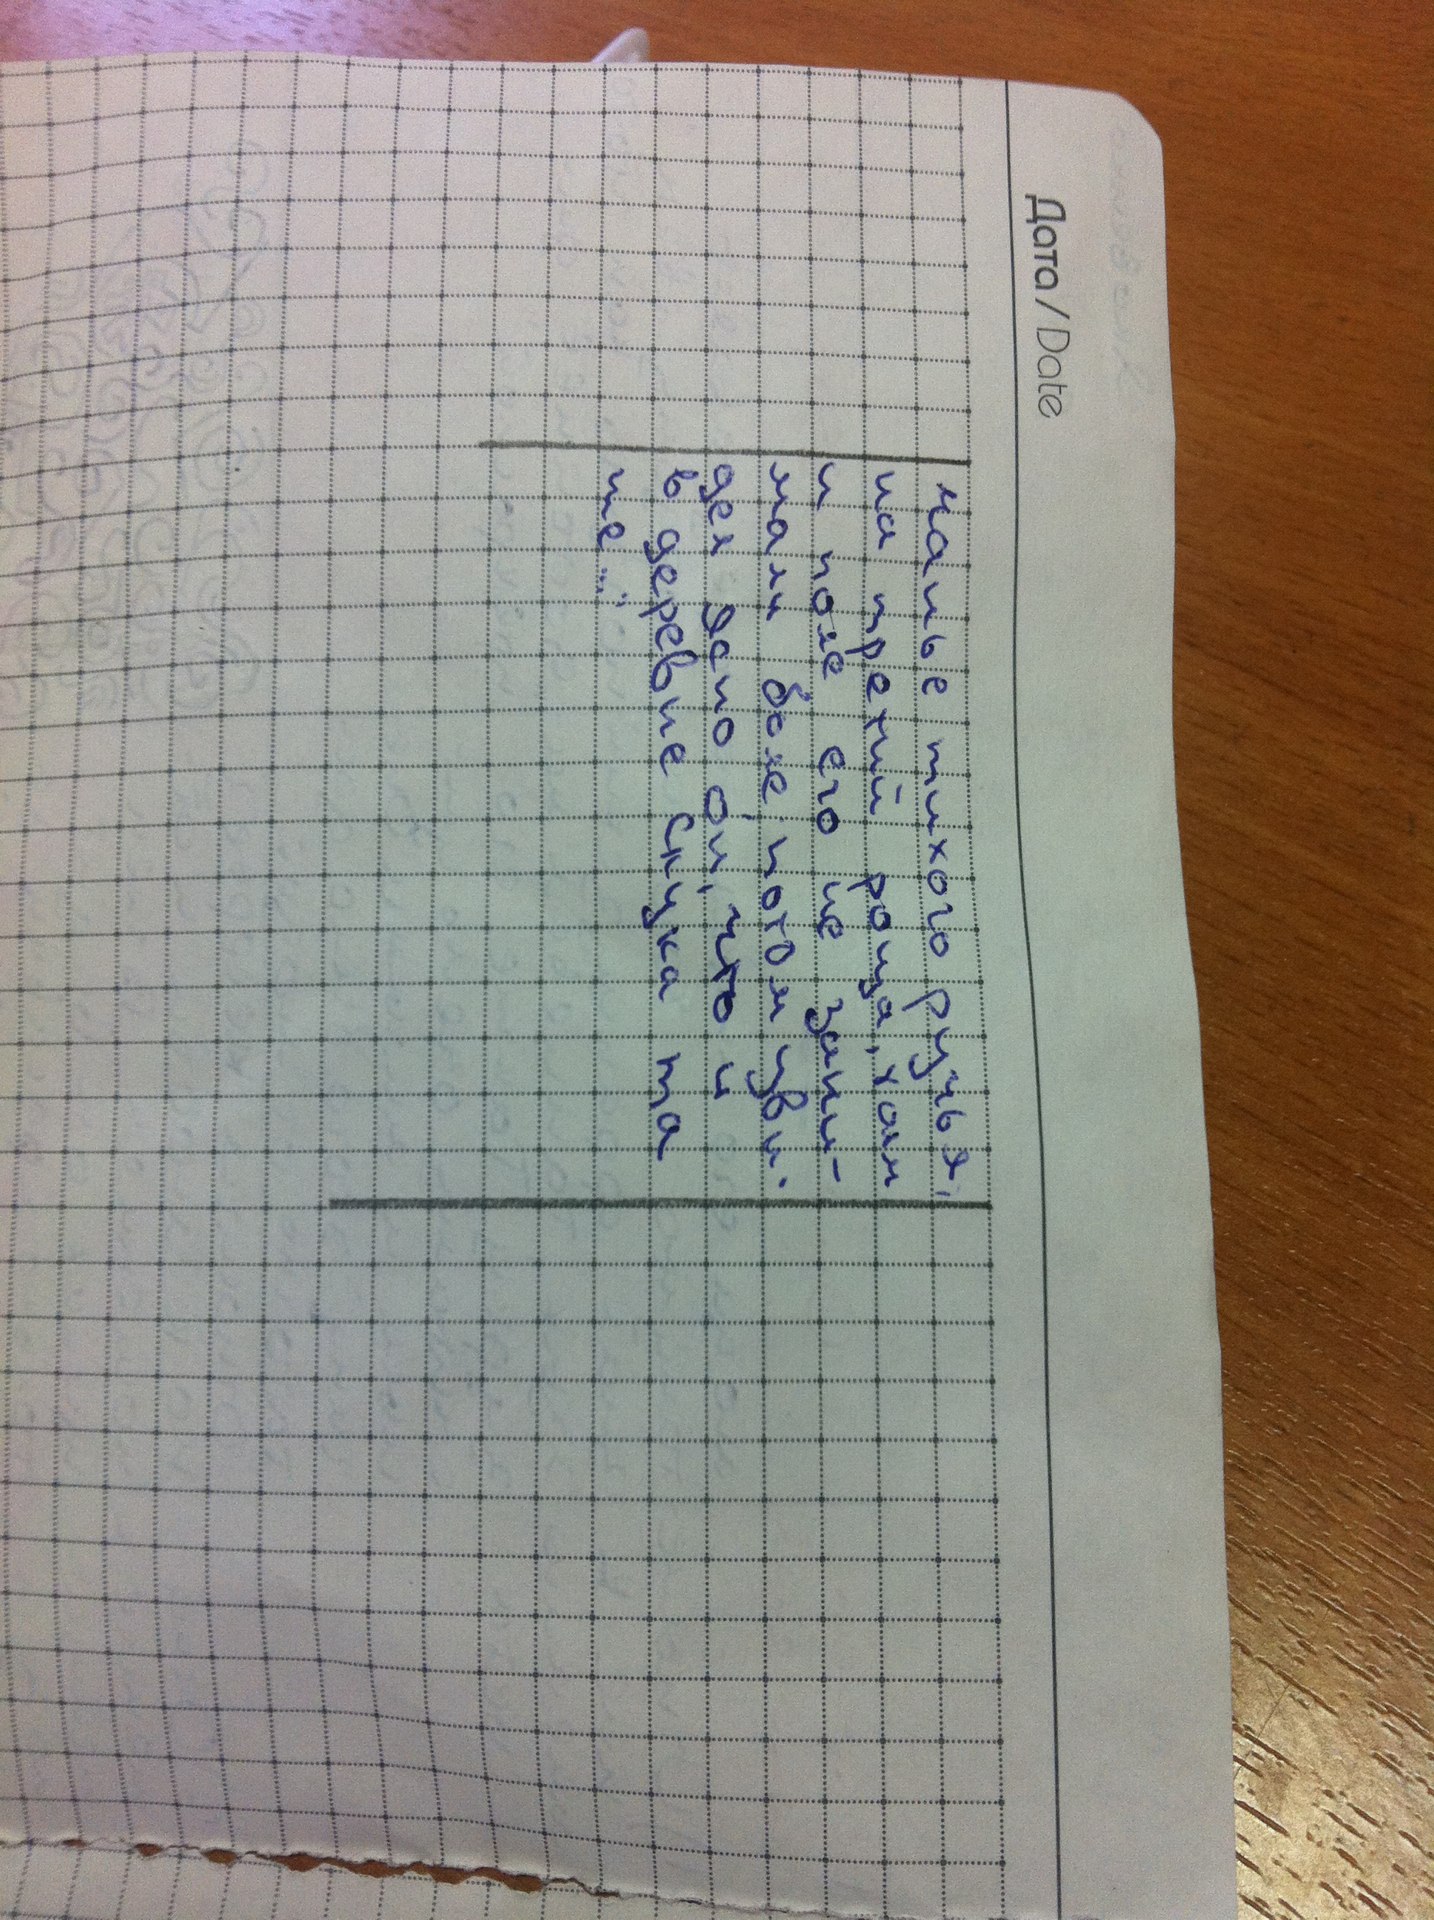 Дата/Date
чанье тихого ручья,
на третий роща, холм
и поле его не зани-
мали боле, потом уви-
дел ясно он, что и
в деревне скука та
же...